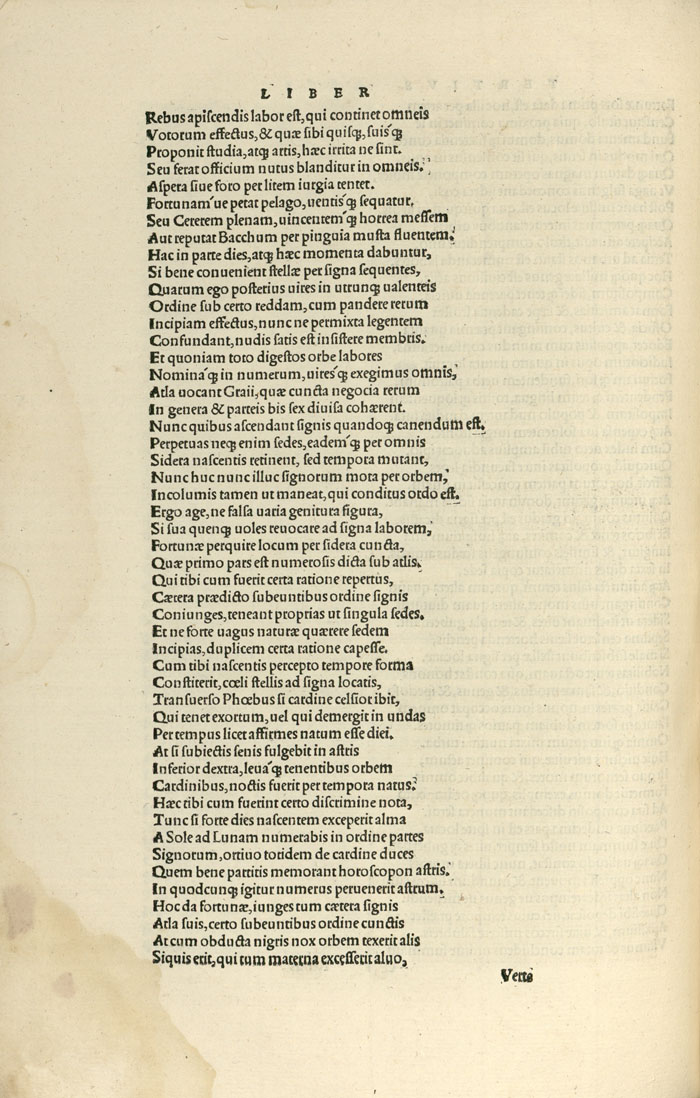 LIBER
Rebus apiſcendis labor eſt, qui continet omneis
Votorum effectus, & quæ ſibi quiſqꝫ, ſuisqꝫ́
Proponit ſtudia, atqꝫ artis, hæc irrita ne ſint.
Seu ferat officium nutus blanditur in omneis.
Aſpera ſiue foro per litem iurgia tentet.
Fortunam´ue petat pelago, uentisqꝫ́ ſequatur.
Seu Cererem plenam, uincentemqꝫ́ horrea meſſem
Aut reputat Bacchum per pinguia muſta fluentem.
Hac in parte dies, atqꝫ hæc momenta dabuntur,
Si bene conuenient ſtellæ per ſigna ſequentes,
Quarum ego poſterius uires in utrunqꝫ ualenteis
Ordine ſub certo reddam, cum pandere rerum
Incipiam effectus, nunc ne permixta legentem
Confundant, nudis ſatis eſt inſiſtere membris.
Et quoniam toto digeſtos orbe labores
Nominaqꝫ́ in numerum, uiresqꝫ́ exegimus omnis,
Atla uocant Graii, quæ cuncta negocia rerum
In genera & parteis bis ſex diuiſa cohærent.
Nunc quibus aſcendant ſignis quandoqꝫ canendum eſt.
Perpetuas neqꝫ enim ſedes, eademqꝫ́ per omnis
Sidera naſcentis retinent, ſed tempora mutant,
Nunc huc nunc illuc ſignorum mota per orbem,
Incolumis tamen ut maneat, qui conditus ordo eſt.
Ergo age, ne falſa uaria genitura figura,
Si ſua quenqꝫ uoles reuocare ad ſigna laborem,
Fortunæ perquire locum per ſidera cuncta,
Quæ primo pars eſt numeroſis dicta ſub atlis.
Qui tibi cum fuerit certa ratione repertus,
Cætera prædicto ſubeuntibus ordine ſignis
Coniunges, teneant proprias ut ſingula ſedes.
Et ne forte uagus naturæ quærere ſedem
Incipias, duplicem certa ratione capeſſe.
Cum tibi naſcentis percepto tempore forma
Conſtiterit, cœli ſtellis ad ſigna locatis,
Tranſuerſo Phœbus ſi cardine celſior ibit,
Qui tenet exortum, uel qui demergit in undas
Per tempus licet affirmes natum eſſe diei.
At ſi ſubiectis ſenis fulgebit in aſtris
Inferior dextra, leuaqꝫ́ tenentibus orbem
Cardinibus, noctis fuerit per tempora natus.
Hæc tibi cum fuerint certo diſcrimine nota,
Tunc ſi forte dies naſcentem exceperit alma
A Sole ad Lunam numerabis in ordine partes
Signorum, ortiuo totidem de cardine duces
Quem bene partitis memorant horoſcopon aſtris.
In quodcunqꝫ igitur numerus peruenerit aſtrum,
Hoc da fortunæ, iunges tum cætera ſignis
Atla ſuis, certo ſubeuntibus ordine cunctis
At cum obducta nigris nox orbem texerit alis
Siquis erit, qui tum materna exceſſerit aluo,
Verte